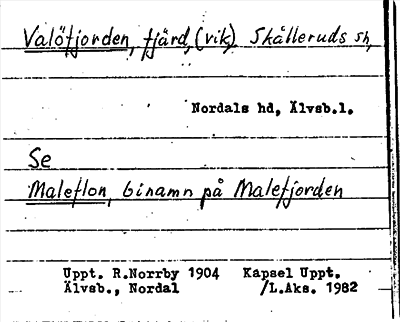 Valöfjorden, fjärd, (vik) Skålleruds sn,
Nordals hd, Älvsb.l.
Se
Maleflon, binamn på Malefjorden
Uppt. R.Norrby 1904 Kapsel Uppt.
Älvsb., Nordal /L.Aks. 1982